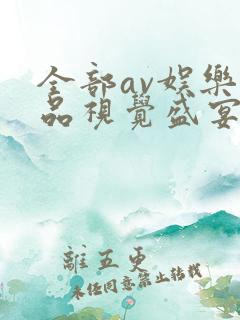 全部av娱樂
品視覺盛宴
離五更
未经同意禁止转载